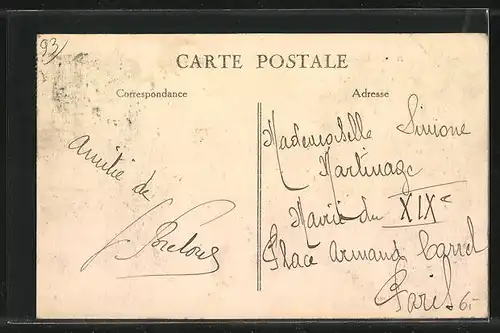 93/
CARTE POSTALE
Correspondance
Adresse
amitié de
Mademoiselle Simone
Martinage
Mairie du XIXe
Place Armand Carrel
Paris
6.-